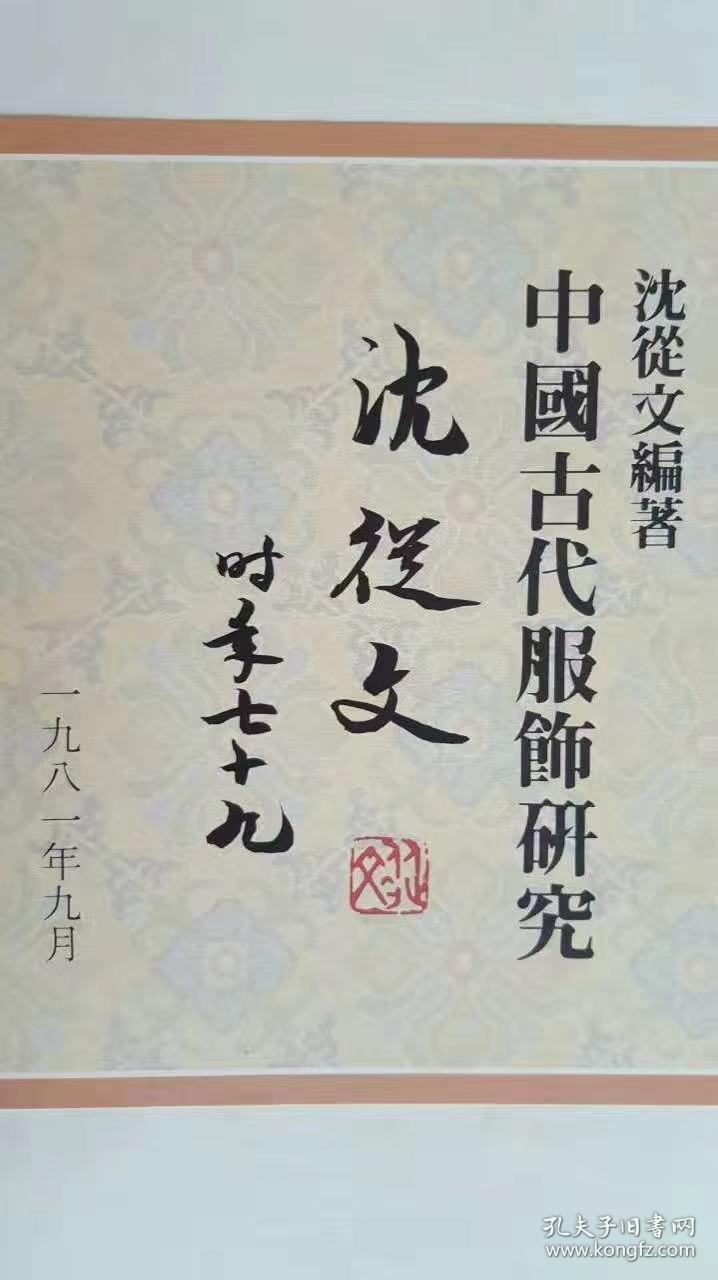 沈從文編著
中國古代服飾研究
沈從文
从文
时年七十九
一九八一年九月
孔夫子旧书网
www.kongfz.com